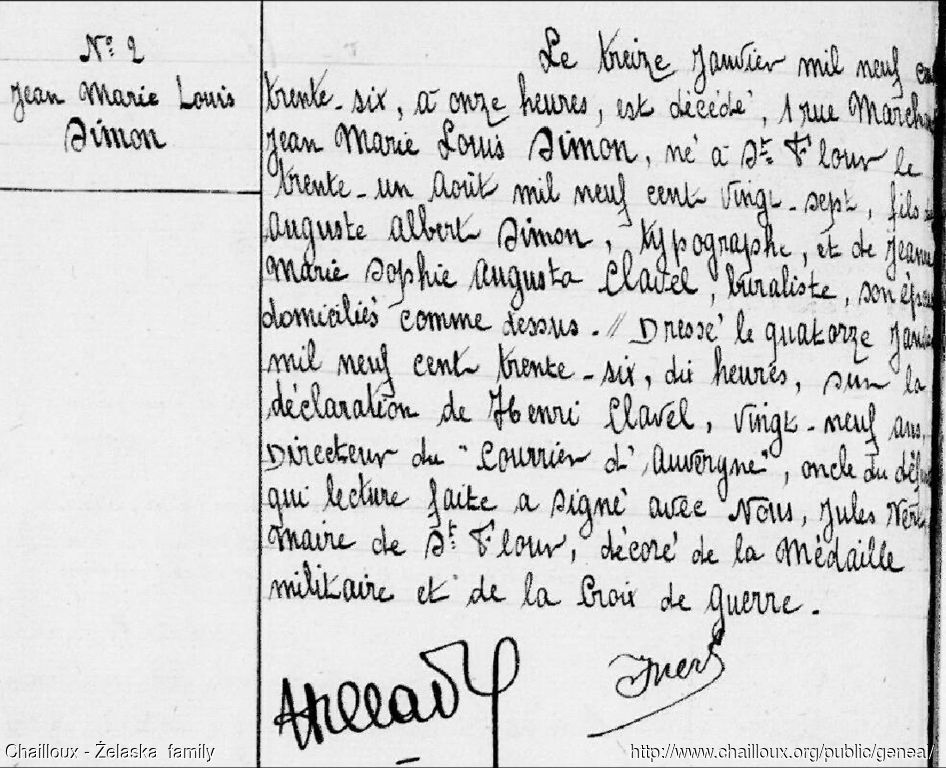 N° 2
Jean Marie Louis
Simon
Le treize Janvier mil neuf cen
trente-six, à onze heures, est décédé, 1 rue March
Jean Marie Louis Simon, né à St. Flour le
trente-un Août mil neuf cent vingt-sept, fils
Auguste Albert Simon, typographe, et de Jeanne
Marie Sophie Augusta Clavel, buraliste, son épou
domiciliés comme dessus. // Dressé le quatorze Janv
mil neuf cent trente-six, dix heures, sur la
déclaration de Henri Clavel, vingt-neuf ans,
Directeur du "Courrier d'Auvergne", oncle du défu
qui lecture faite a signé avec Nous, Jules
Maire de St. Flour, décoré de la Médaille
militaire et de la Croix de guerre.
Chailloux - Żelaska family
http://www.chailloux.org/public/genea/